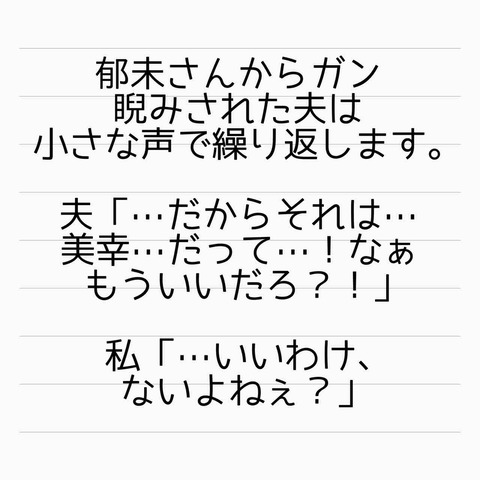 郁未さんからガン
睨みされた夫は
小さな声で繰り返します。
夫「…だからそれは…
美幸…だって…！なぁ
もういいだろ？！」
私「…いいわけ、
ないよねぇ？」